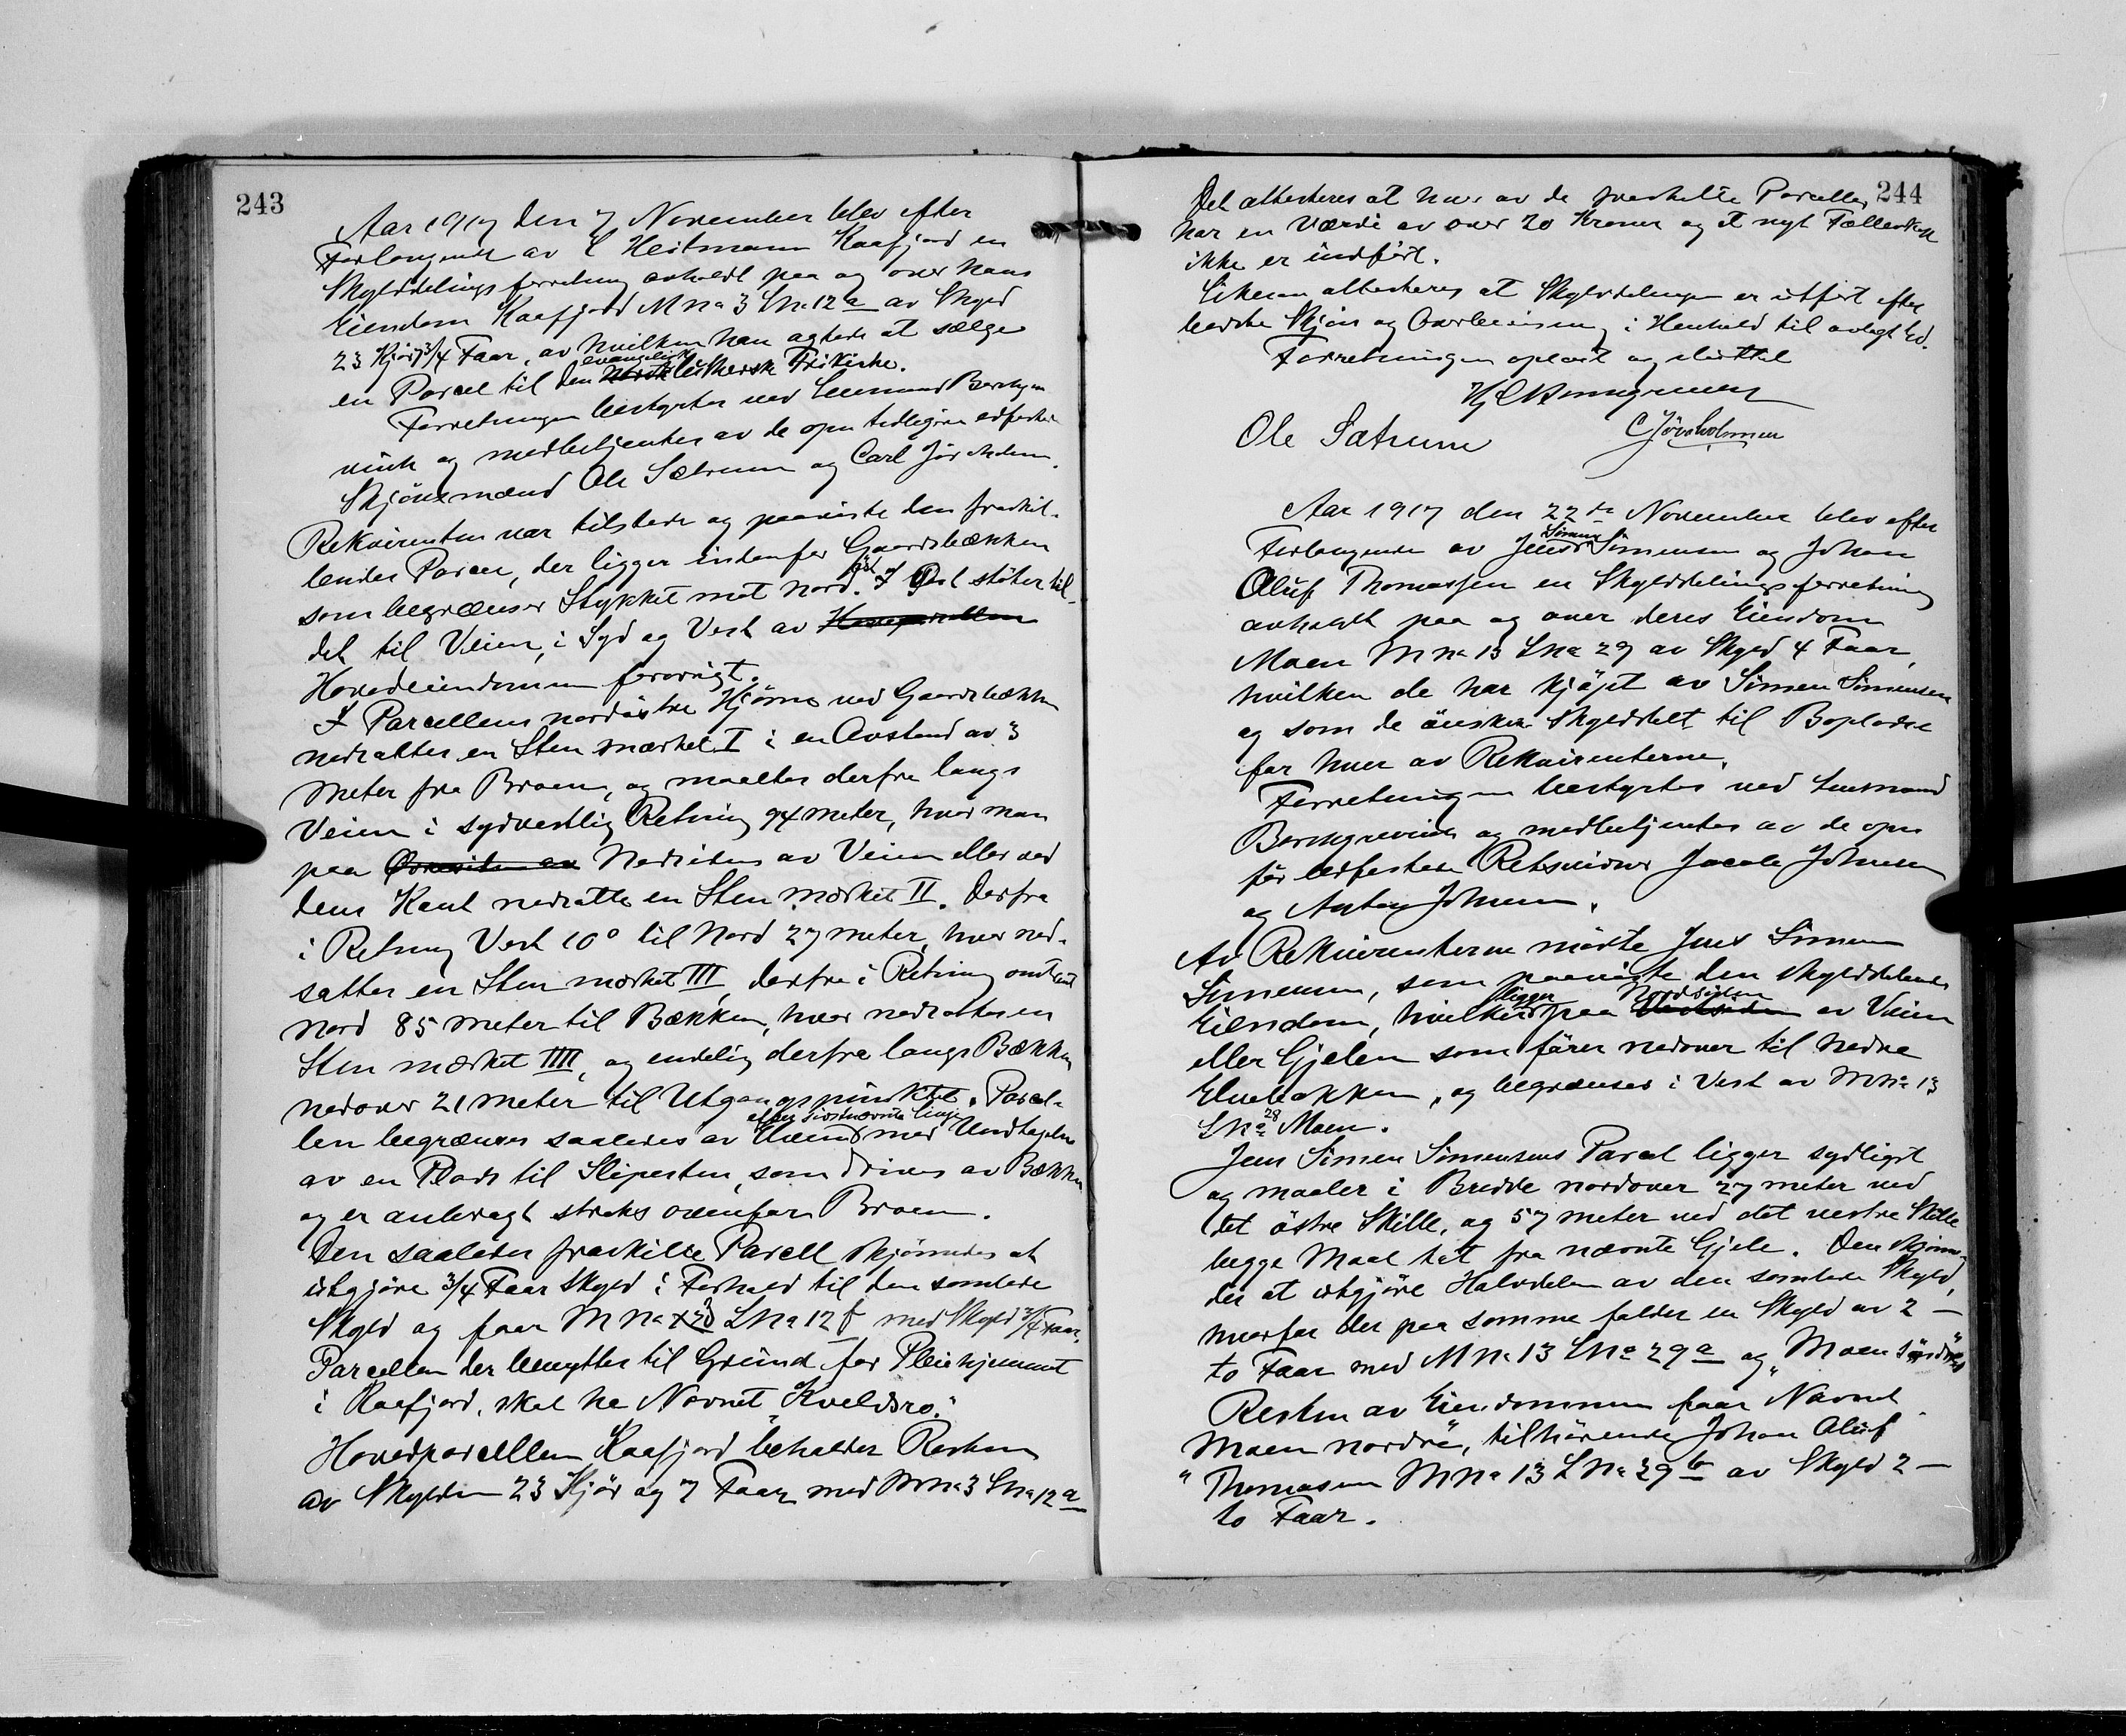 243
Aar 1917 den 7 November blev efter
Forlangende av C Heitmann Kaafjord en
Skylddelingsforretning avholdt paa og over hans
Eiendom Kaafjord M no 3 Lno 12 a av Skyld
23 Kjør 7 3/4 Faar, av hvilken han agtede at sælge
en Parcel til den evangelisk luthersk Frikirke.
Forretningen bestyrtes ved Lensmand
og medbetjentes av de opn tidligere edfæstede
Skjönsmænd Ole Sætrum og Carl
Rekvirenten var tilstede og paaviste den fraskil-
lende Parcel, der ligger indenfor Gaardsbækken
som begrænser Stykket mot Nord. I Øst støter til-
det til Veien, i Syd og Vest av Hovedparcellen
Hovedeiendommen forövrigt.
I Parcellens nordöstre Hjørne ved Gaardsbækken
nedsattes en Sten mærket I i en Avstand av 3
Meter fra Broen, og maaltes derfra langs
Veien i sydvestlig Retning 94 meter, hvor man
paa Nedsiden av Veien eller ved
dens Kant nedsatte en Sten mærket II. Derfra
i Retning Vest 10° til Nord 27 meter, hvor ned-
sattes en Sten mærket III, derfra i Retning omtrent
Nord 85 meter til Bækken, hvor nedsattes en
Sten mærket IIII, og endelig derfra langs Bækken
nedover 21 meter til Utgangspunktet. Parcel-
len begrænses saaledes av efter sidstnævnte Linje med Undtagelse
av en Plads til Slipesten, som drives av Bækken
og er anbragt straks ovenfor Broen.
Den saaledes fraskilte Parcell skjønnedes at
utgjøre 3/4 Faar Skyld i Forhold til den samlede
Skyld og faar M No 3 L No 12 f med Skyld 3/4 Faar.
Parcellen der benyttes til Grund for Pleiehjemmet
i Kaafjord, skal ha Navnet "Kveldsro."
Hovedparcellen Kaafjord beholder Resten
av Skylden 23 Kjør og 7 Faar med M no 3 L no 12 a
244
Det attesteres at hver av de fraskilte Parceller
har en Værdi av over 20 Kroner og at nyt Fællesskap
ikke er indført.
Likesaa attesteres at Skylddelingen er utført efter
bedste Skjøn og Overbevisning i Henhold til avlagt Ed.
Forretningen oplæst og sluttet
Ole Sætrum
Aar 1917 den 22de November blev efter
Forlangende av Jens Simen Simensen og Johan
Oluf Thomassen en Skylddelingsforretning
avholdt paa og over deres Eiendom
Moen M no 13 L no 29 av Skyld 4 Faar,
hvilken de har kjøpt av Simen Simensen
og som de ønsker skylddelt til Boplads
for hver av Rekvirenterne.
Forretningen bestyrtes ved Lensmand
Berchgrevink og medbetjentes av de opn
før edfæstede Retsvidner Jacob Johnsen
og Anton Johnsen.
Av Rekvirenterne mødte Jens Simen
Simensen, som paaviste den skylddelende
Eiendom, hvilken ligger paa Nordsiden av Veien
eller Gjelen som fører nedover til Nedre
Elvebakken, og begrænses i Vest av M No 13
L No 28 Moen.
Jens Simen Simensens Parcel ligger sydligst
og maaler i Bredde nordover 27 meter ved
det østre Skille, og 57 meter ved det vestre Skille
begge Maal tat fra nævnte Gjele. Den skjønne-
des at utgjøre Halvdelen av den samlede Skyld,
hvorfor der paa samme falder en Skyld av 2 —
to Faar med M No 13 L No 29 a og "Moen søndre"
Resten av Eiendommen faar Navnet
"Moen nordre", tilhörende Johan Oluf
Thomassen M No 13 L No 29 b av Skyld 2 —
to Faar.